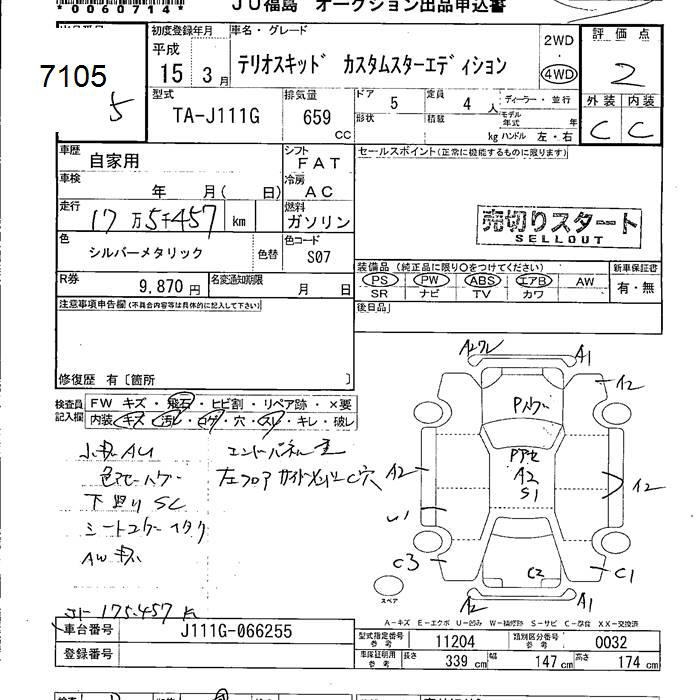 *0060714*
JU福島 オークション出品申込書
7105
5
初度登録年月
平成
15年 3月
車名・グレード
テリオスキッド カスタムスターエディション
2WD
4WD
評価点
2
外装 内装
C C
型式
TA-J111G
排気量
659
cc
ドア 5
定員 4人
ディーラー・並行
形状
積載
kg
モデル年式 年
ハンドル 左・右
車歴
自家用
シフト
FAT
セールスポイント(正常に機能するものに限ります)
車検
年 月( 日)
冷房
AC
走行
17万5千457 km
燃料
ガソリン
売切りスタート
SELLOUT
色
シルバーメタリック
色替
色コード
S07
R券
9,870円
名変通知期限
月 日
装備品(純正品に限り○をつけてください)
PS PW ABS エアB AW
SR ナビ TV カワ
新車保証書
有・無
注意事項申告欄(不具合内容等は具体的に記入して下さい)
後日品
修復歴 有〔箇所 〕
検査員記入欄
FW キズ・飛石・ヒビ割・リペア跡・×要
内装・キズ・汚レ・コゲ・穴・スレ・キレ・破レ
下廻り SC
AW キズ
A1
A2
A2
S1
A2
C3
C2
C1
A2
A1
スペア
A-キズ E-エクボ U-凹み W-補修跡 S-サビ C-腐食 XX-交換済
175.457K
車台番号
J111G-066255
登録番号
型式指定番号
参考
11204
類別区分番号
参考
0032
車庫証明用
参考
長さ 339cm
幅 147cm
高さ 174cm